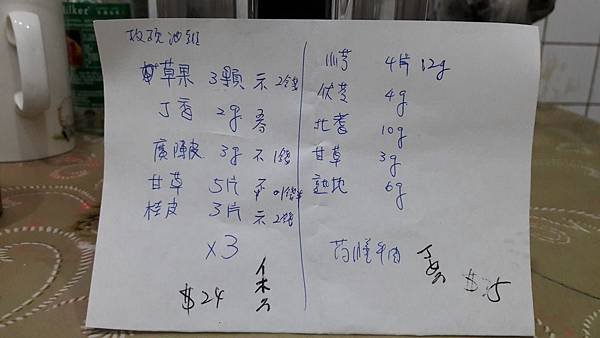 玫瑰油雞
草果 3顆 示 2錢
丁香 2g
廣陳皮 3g 不 1錢
甘草 5片
桂皮 3片 示 2錢
x3
$24
川芎 4片 12g
伏苓 4g
北耆 10g
甘草 3g
熟地 6g
羊肉